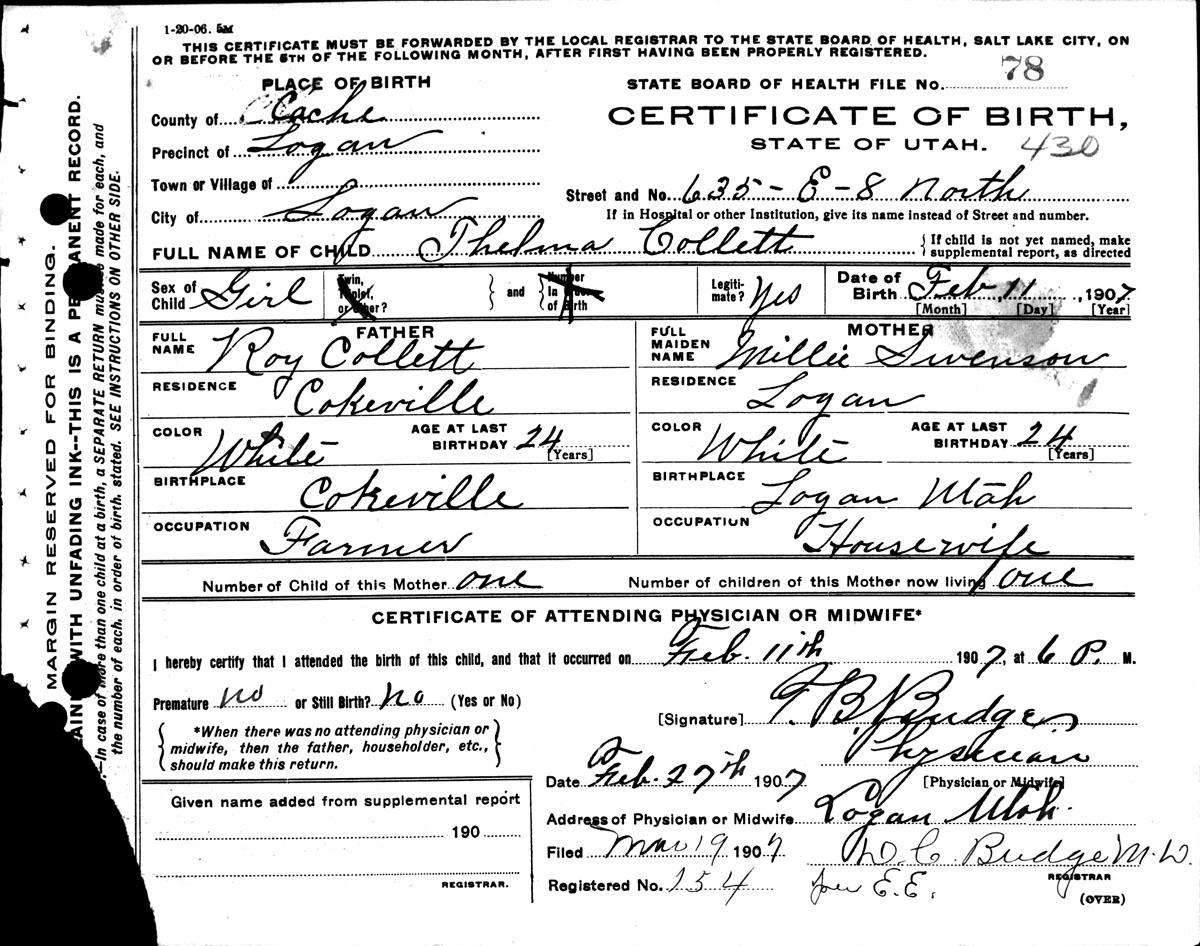 1-20-06. 5M
THIS CERTIFICATE MUST BE FORWARDED BY THE LOCAL REGISTRAR TO THE STATE BOARD OF HEALTH, SALT LAKE CITY, ON
OR BEFORE THE 5TH OF THE FOLLOWING MONTH, AFTER FIRST HAVING BEEN PROPERLY REGISTERED.
PLACE OF BIRTH
STATE BOARD OF HEALTH FILE No. 78
County of Cache
CERTIFICATE OF BIRTH,
Precinct of Logan
STATE OF UTAH. 430
Town or Village of
Street and No. 635 - E - 8 North
City of Logan
If in Hospital or other Institution, give its name instead of Street and number.
FULL NAME OF CHILD Thelma Collett
{ If child is not yet named, make
supplemental report, as directed
Sex of Child Girl
Twin, Triplet, or Other? } and { Number in Order of Birth
Legiti-mate? Yes
Date of Birth Feb 11, 1907
[Month] [Day] [Year]
FATHER
FULL NAME Roy Collett
MOTHER
FULL MAIDEN NAME Millie Swenson
RESIDENCE Cokeville
RESIDENCE Logan
COLOR White AGE AT LAST BIRTHDAY 24 [Years]
COLOR White AGE AT LAST BIRTHDAY 24 [Years]
BIRTHPLACE Cokeville
BIRTHPLACE Logan Utah
OCCUPATION Farmer
OCCUPATION Housewife
Number of Child of this Mother one
Number of children of this Mother now living one
CERTIFICATE OF ATTENDING PHYSICIAN OR MIDWIFE*
I hereby certify that I attended the birth of this child, and that it occurred on Feb. 11th 1907, at 6 P. M.
Premature no or Still Birth? no (Yes or No)
[Signature] T B Budge
*When there was no attending physician or
midwife, then the father, householder, etc.,
should make this return.
Physician
[Physician or Midwife]
Date Feb. 27th 1907
Given name added from supplemental report
190
REGISTRAR.
Address of Physician or Midwife Logan Utah.
Filed Mar 19 1907
D. C. Budge M.D.
REGISTRAR
Registered No. 154
per E.E.
(OVER)
MARGIN RESERVED FOR BINDING.
WITH UNFADING INK--THIS IS A PERMANENT RECORD.
In case of more than one child at a birth, a SEPARATE RETURN must be made for each, and
the number of each, in order of birth, stated. SEE INSTRUCTIONS ON OTHER SIDE.